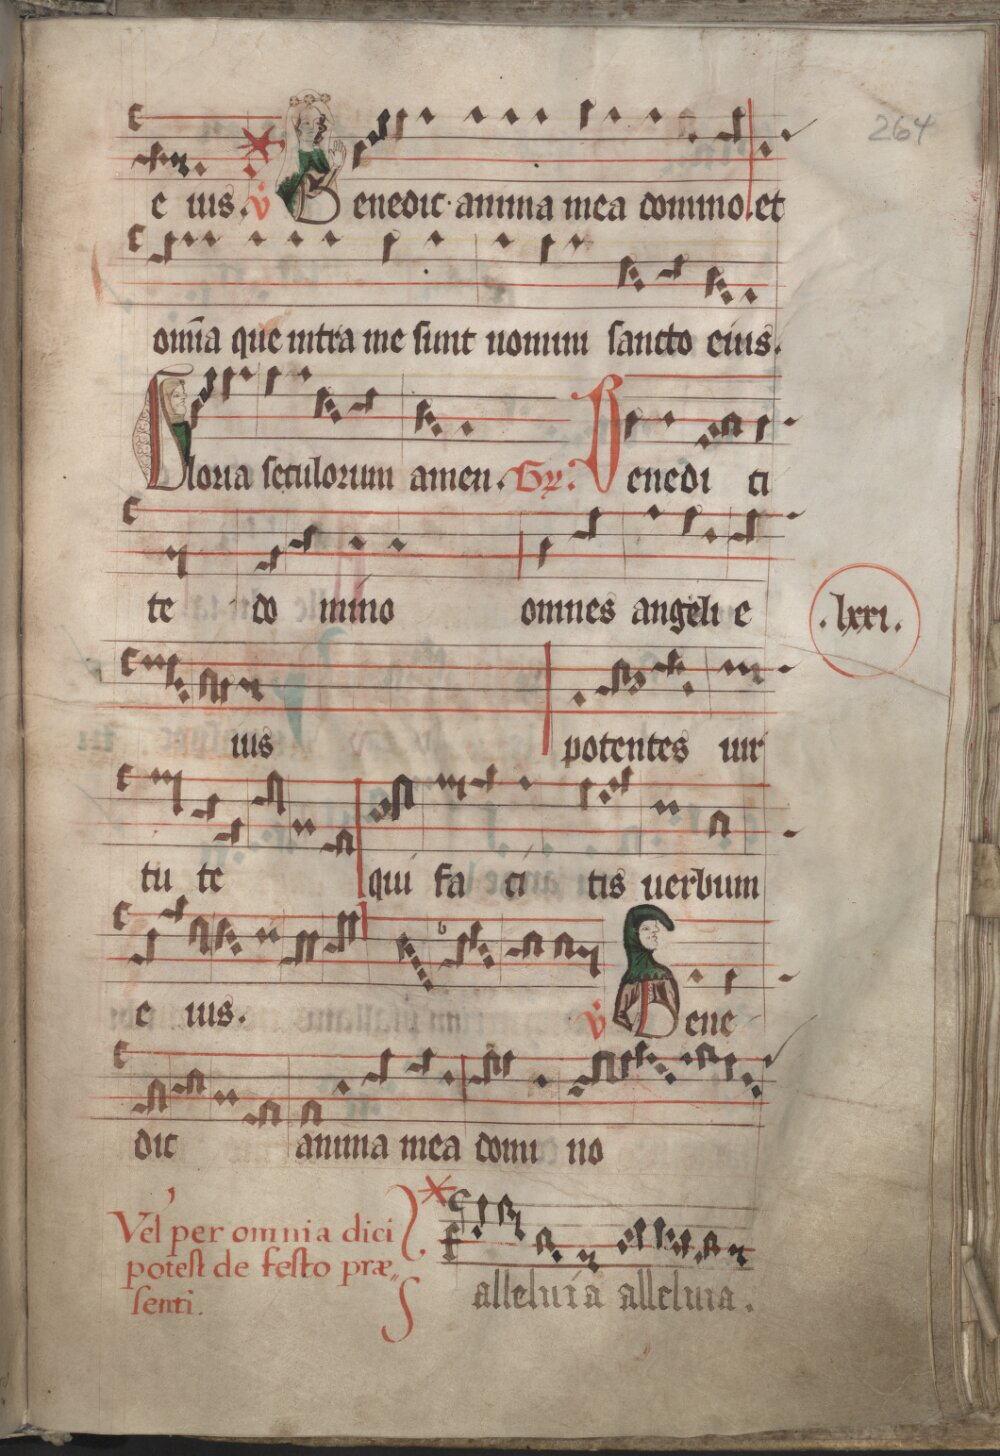 264
e ius. v Benedic anima mea domino. et
omīa que intra me sunt nomini sancto eius.
Gloria seculorum amen. Gr. Benedi ci
te do mino omnes angeli e
.lxxi.
ius potentes uir
tu te qui fa ci tis uerbum
e ius. v Bene
dic anima mea domi no
Vel per omnia dici
potest de festo præ„
senti.
alleluia alleluia.